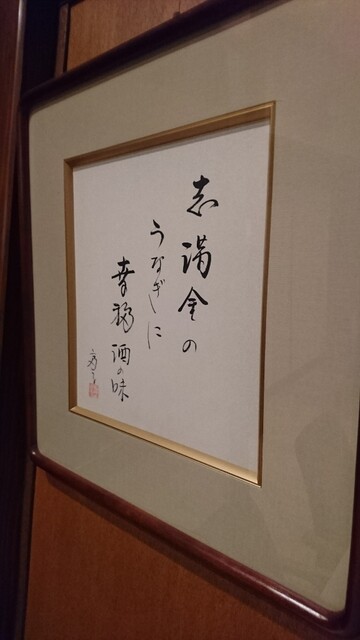 志満金の
うなぎに
幸福酒の味